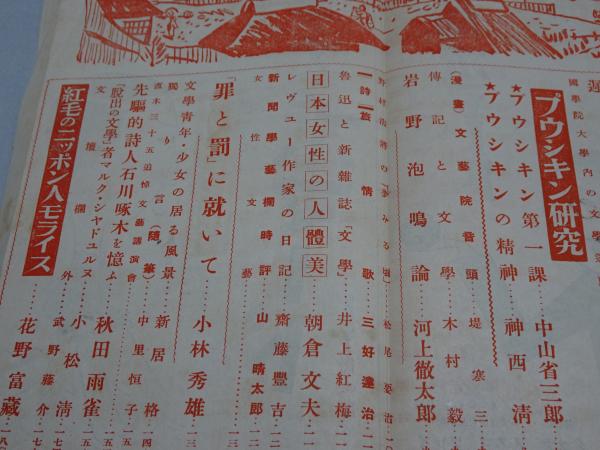 國學院大學内の文學
プウシキン研究
★プウシキン第一課……中山省三郎
★プウシキンの精神……神西清
(漫畫)文藝院音頭……堤寒三
傳記と文學……木村毅
岩野泡鳴論……河上徹太郎
松尾要治
―詩―旅情歌……三好達治
魯迅と新雜誌「文學」……井上紅梅
日本女性の人體美……朝倉文夫
レヴュー作家の日記……齋藤豐吉
新聞學藝欄時評……山晴太郎
女性文藝
「罪と罰」に就いて……小林秀雄
文學靑年・少女の居る風景……新居格
獨り言(隨筆)……中里恒子
直木三十五追悼文藝講演會
先驅的詩人石川啄木を憶ふ……秋田雨雀
「脫出の文學」者マルク・シャドュルヌ……小松清
文壇欄外……武野藤介
紅毛のニッポン人モライス……花野富藏